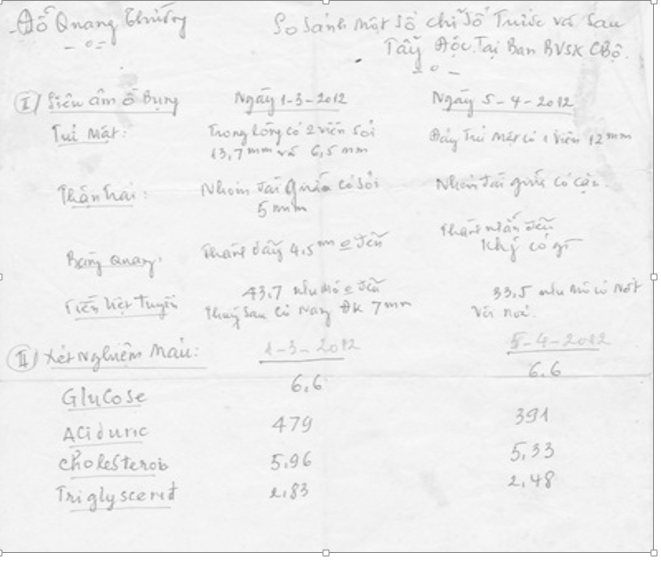 Đỗ Quang Thường
So Sánh một số chỉ số Trước và sau
Tẩy Độc Tại Ban BVSK CBộ.
I / Siêu âm ổ Bụng Ngày 1-3-2012 Ngày 5-4-2012
Túi Mật: Trong lòng có 2 viên sỏi Đáy Túi Mật có 1 viên 12 mm
13,7mm và 6,5 mm
Thận Trái: Nhóm đài giữa có sỏi Nhóm đài giữa có cặn.
5 mm
Bàng Quang: Thành dầy 4,5 mm đều Thành nhẵn đều
không có gì
Tiền liệt Tuyến 43,7 nhu mô đều 33,5 nhu mô có nốt
Thùy sau có nang ĐK 7mm vôi
II / Xét Nghiệm Máu: 1-3-2012 5-4-2012
Glucose 6,6 6.6
Aciduric 479 391
Cholesterob 5,96 5,33
Triglyscerit 2,83 2,48